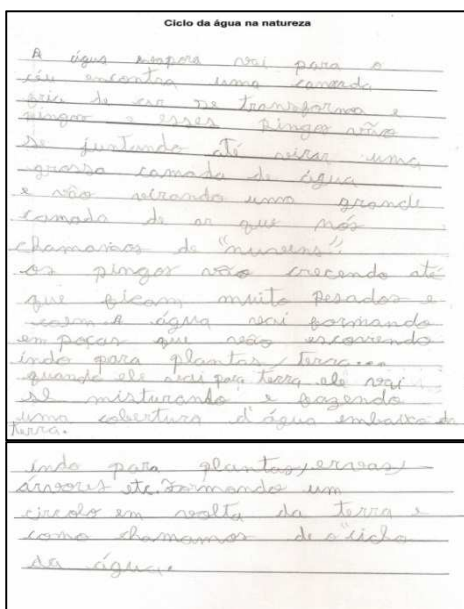 Ciclo da água na natureza
A água evapora vai para o
céu encontra uma camada
fria de ar se transforma e
pingos e esses pingos vão
se juntando até virar uma
grossa camada de água
e vão virando uma grande
camada de ar que nós
chamamos de "nuvens":
os pingos vão crecendo até
que ficam muito pesados e
caem A água vai formando
em poças que vão escorrendo
indo para plantas, terra...
quando ele vai para terra ele vai
se misturando e fazendo
uma cobertura d'água embaixo da
terra.
indo para plantas, ervas,
árvores etc. Formando um
circolo em volta da terra e
como chamamos de o "ciclo
da água.